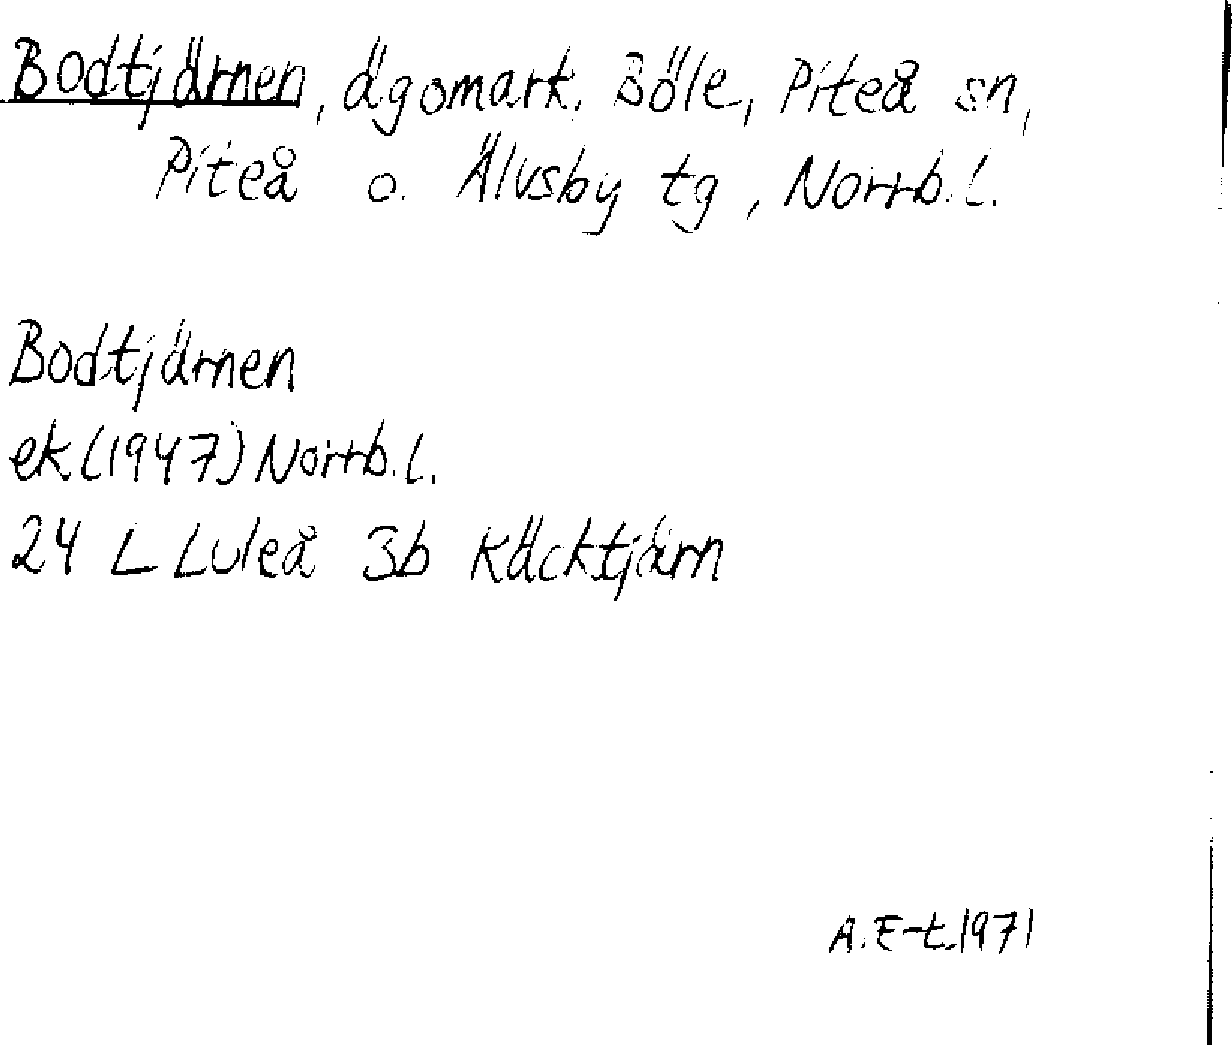 Bodtjärnen, ägomark, Böle, Piteå sn,
Piteå o. Älvsby tg, Norrb.l.
Bodtjärnen
ek(1947)Norrb.l.
24 L Luleå 3b Käcktjärn
A.E-t.1971